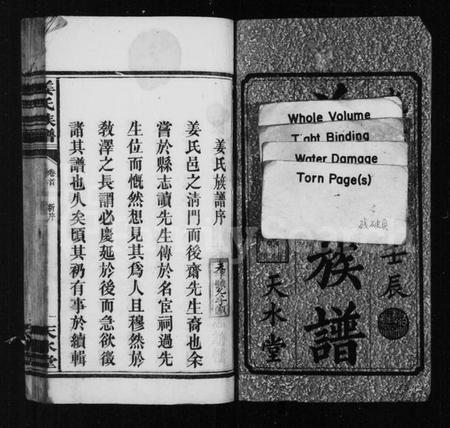 壬辰
族譜
天水堂
Whole Volume
Tight Binding
Water Damage
Torn Page(s)
姜氏族譜序
姜氏邑之淸門而後齋先生裔也余
嘗於縣志讀先生傳於名宦祠過先
生位而慨然想見其爲人且穆然於
敎澤之長謂必慶延於後而急欲徵
諸其譜也久矣頃其礽有事於續輯
姜氏族譜
卷首
新序
天水堂